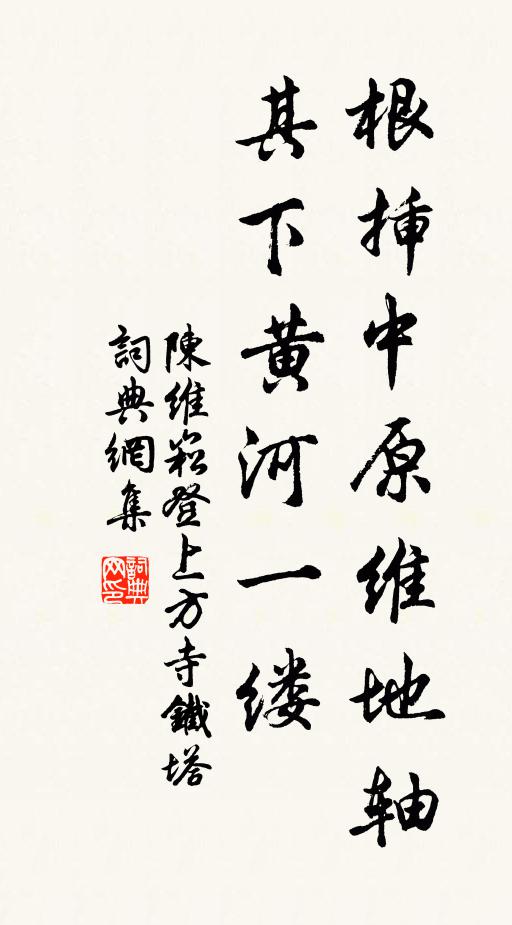 根揷中原维地轴
其下黄河一缕
陳維崧登上方寺鐵塔
詞典網集
詞典网印